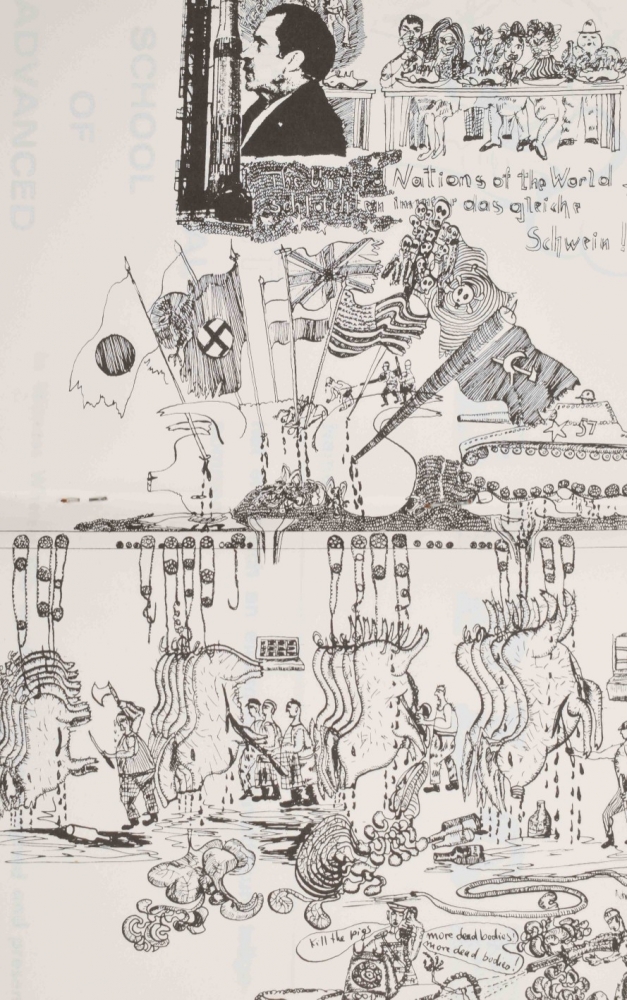 SCHOOL
OF
ADVANCED
The United Nations of the World
Schlachten immer das gleiche
Schwein!
57
kill the pigs
more dead bodies!
more dead bodies!